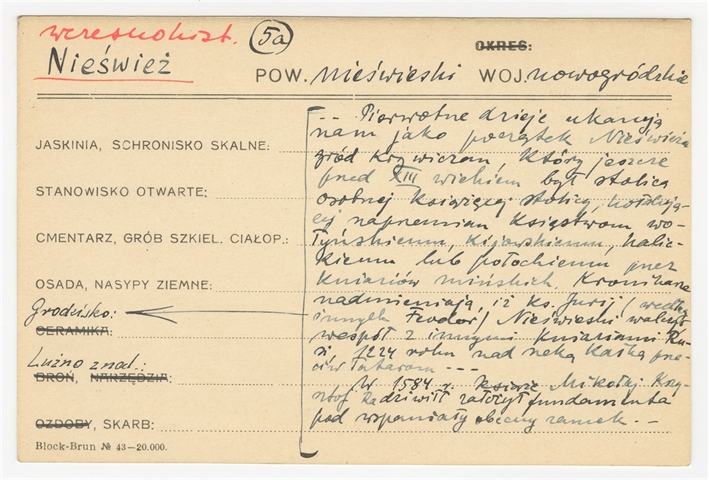 wczesnohist. 5a
OKRES:
Nieśwież
POW. nieświeski WOJ. nowogródzkie
JASKINIA, SCHRONISKO SKALNE:
STANOWISKO OTWARTE:
CMENTARZ, GRÓB SZKIEL. CIAŁOP.:
OSADA, NASYPY ZIEMNE:
Grodzisko:
CERAMIKA:
Luźno znal.:
BROŃ, NARZĘDZIA:
OZDOBY, SKARB:
Block-Brun № 43–20.000.
-- Pierwotne dzieje ukazują
nam jako początek Nieświeża
gród Krywiczan, który jeszcze
przed XIII wiekiem był stolicą
osobnej książęcej stolicy, hołdują-
cej naprzemian księstwom wo-
łyńskiemu, kijowskiemu, halic-
kiemu lub połockiemu przez
kniaziów mińskich. Kronikarze
nadmieniają, iż ks. Jurij /według
innych Teodor/ Nieświeski walczył
wespół z innymi kniaziami Ru-
si, 1224 roku nad rzeką Kałką prze-
ciw tatarom ---
W 1584 r. książę Mikołaj Krzy-
sztof Radziwiłł założył fundamenta
pod wspaniały obecny zamek. --